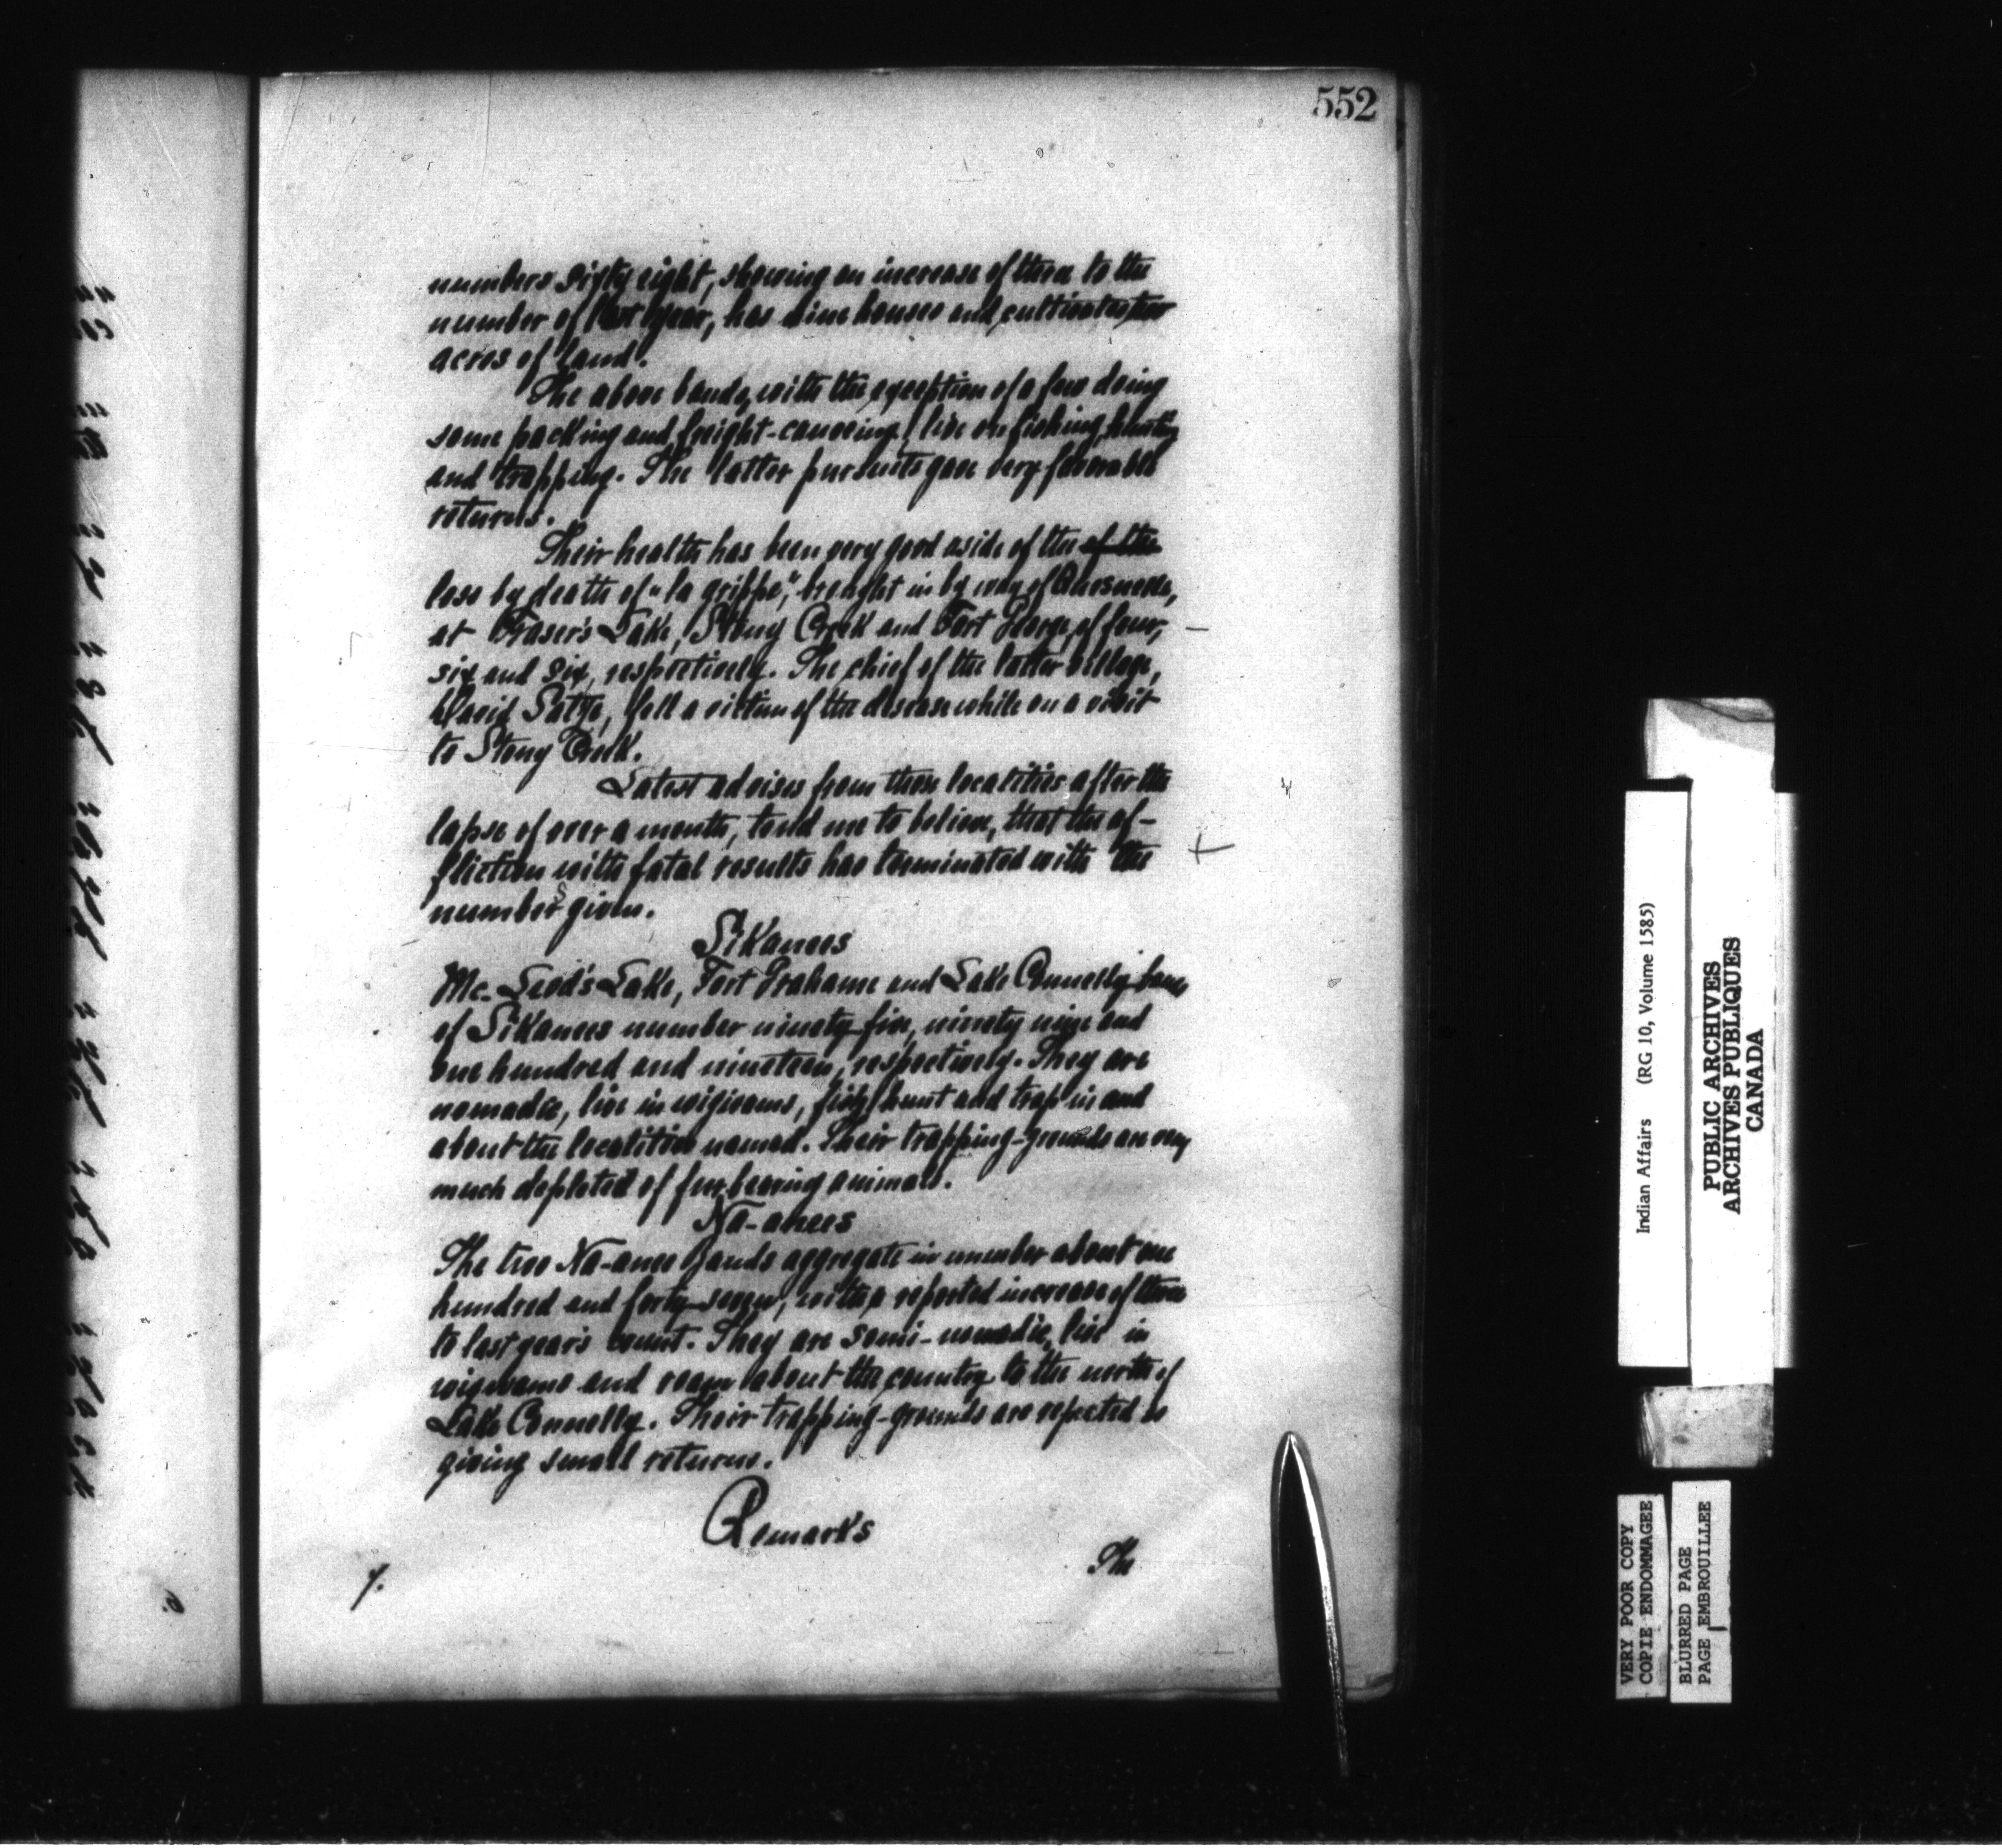 552
numbers sixty eight, showing an increase of three to the
number of last year, has nine houses and cultivates
acres of land.
The above bands, with the exception of a few doing
some packing and freight-canoeing, live on fishing, hunting
and trapping. The latter pursuits gave very favorable
returns.
Their health has been very good aside of the of the
loss by death of "la grippe", brought in by way of Quesnelle,
at Fraser's Lake, Stony Creek and Fort George, of four,
six and six, respectively. The chief of the latter village,
David, fell a victim of the disease while on a visit
to Stony Creek.
Latest advises from these localities after the
lapse of over a month, tend me to believe, that the af-
fliction with fatal results has terminated with the
numbers given.
Sikanees
Mc. Leod's Lake, Fort Grahame and Lake Connelly bands
of Sikanees number ninety five, ninety nine and
one hundred and nineteen, respectively. They are
nomadic, live in wigwams, fish, hunt and trap in and
about the localities named. Their trapping-grounds are very
much depleted of fur bearing animals.
Na-anees
The two Na-anee Bands aggregate in number about one
hundred and forty-seven, with a reported increase of three
to last year's count. They are semi-nomadic, live in
wigwams and roam about the country to the north of
Lake Connelly. Their trapping-grounds are reported as
giving small returns.
Remarks
The
7.
Indian Affairs (RG 10, Volume 1585)
PUBLIC ARCHIVES
ARCHIVES PUBLIQUES
CANADA
VERY POOR COPY
COPIE ENDOMMAGEE
BLURRED PAGE
PAGE EMBROUILLEE